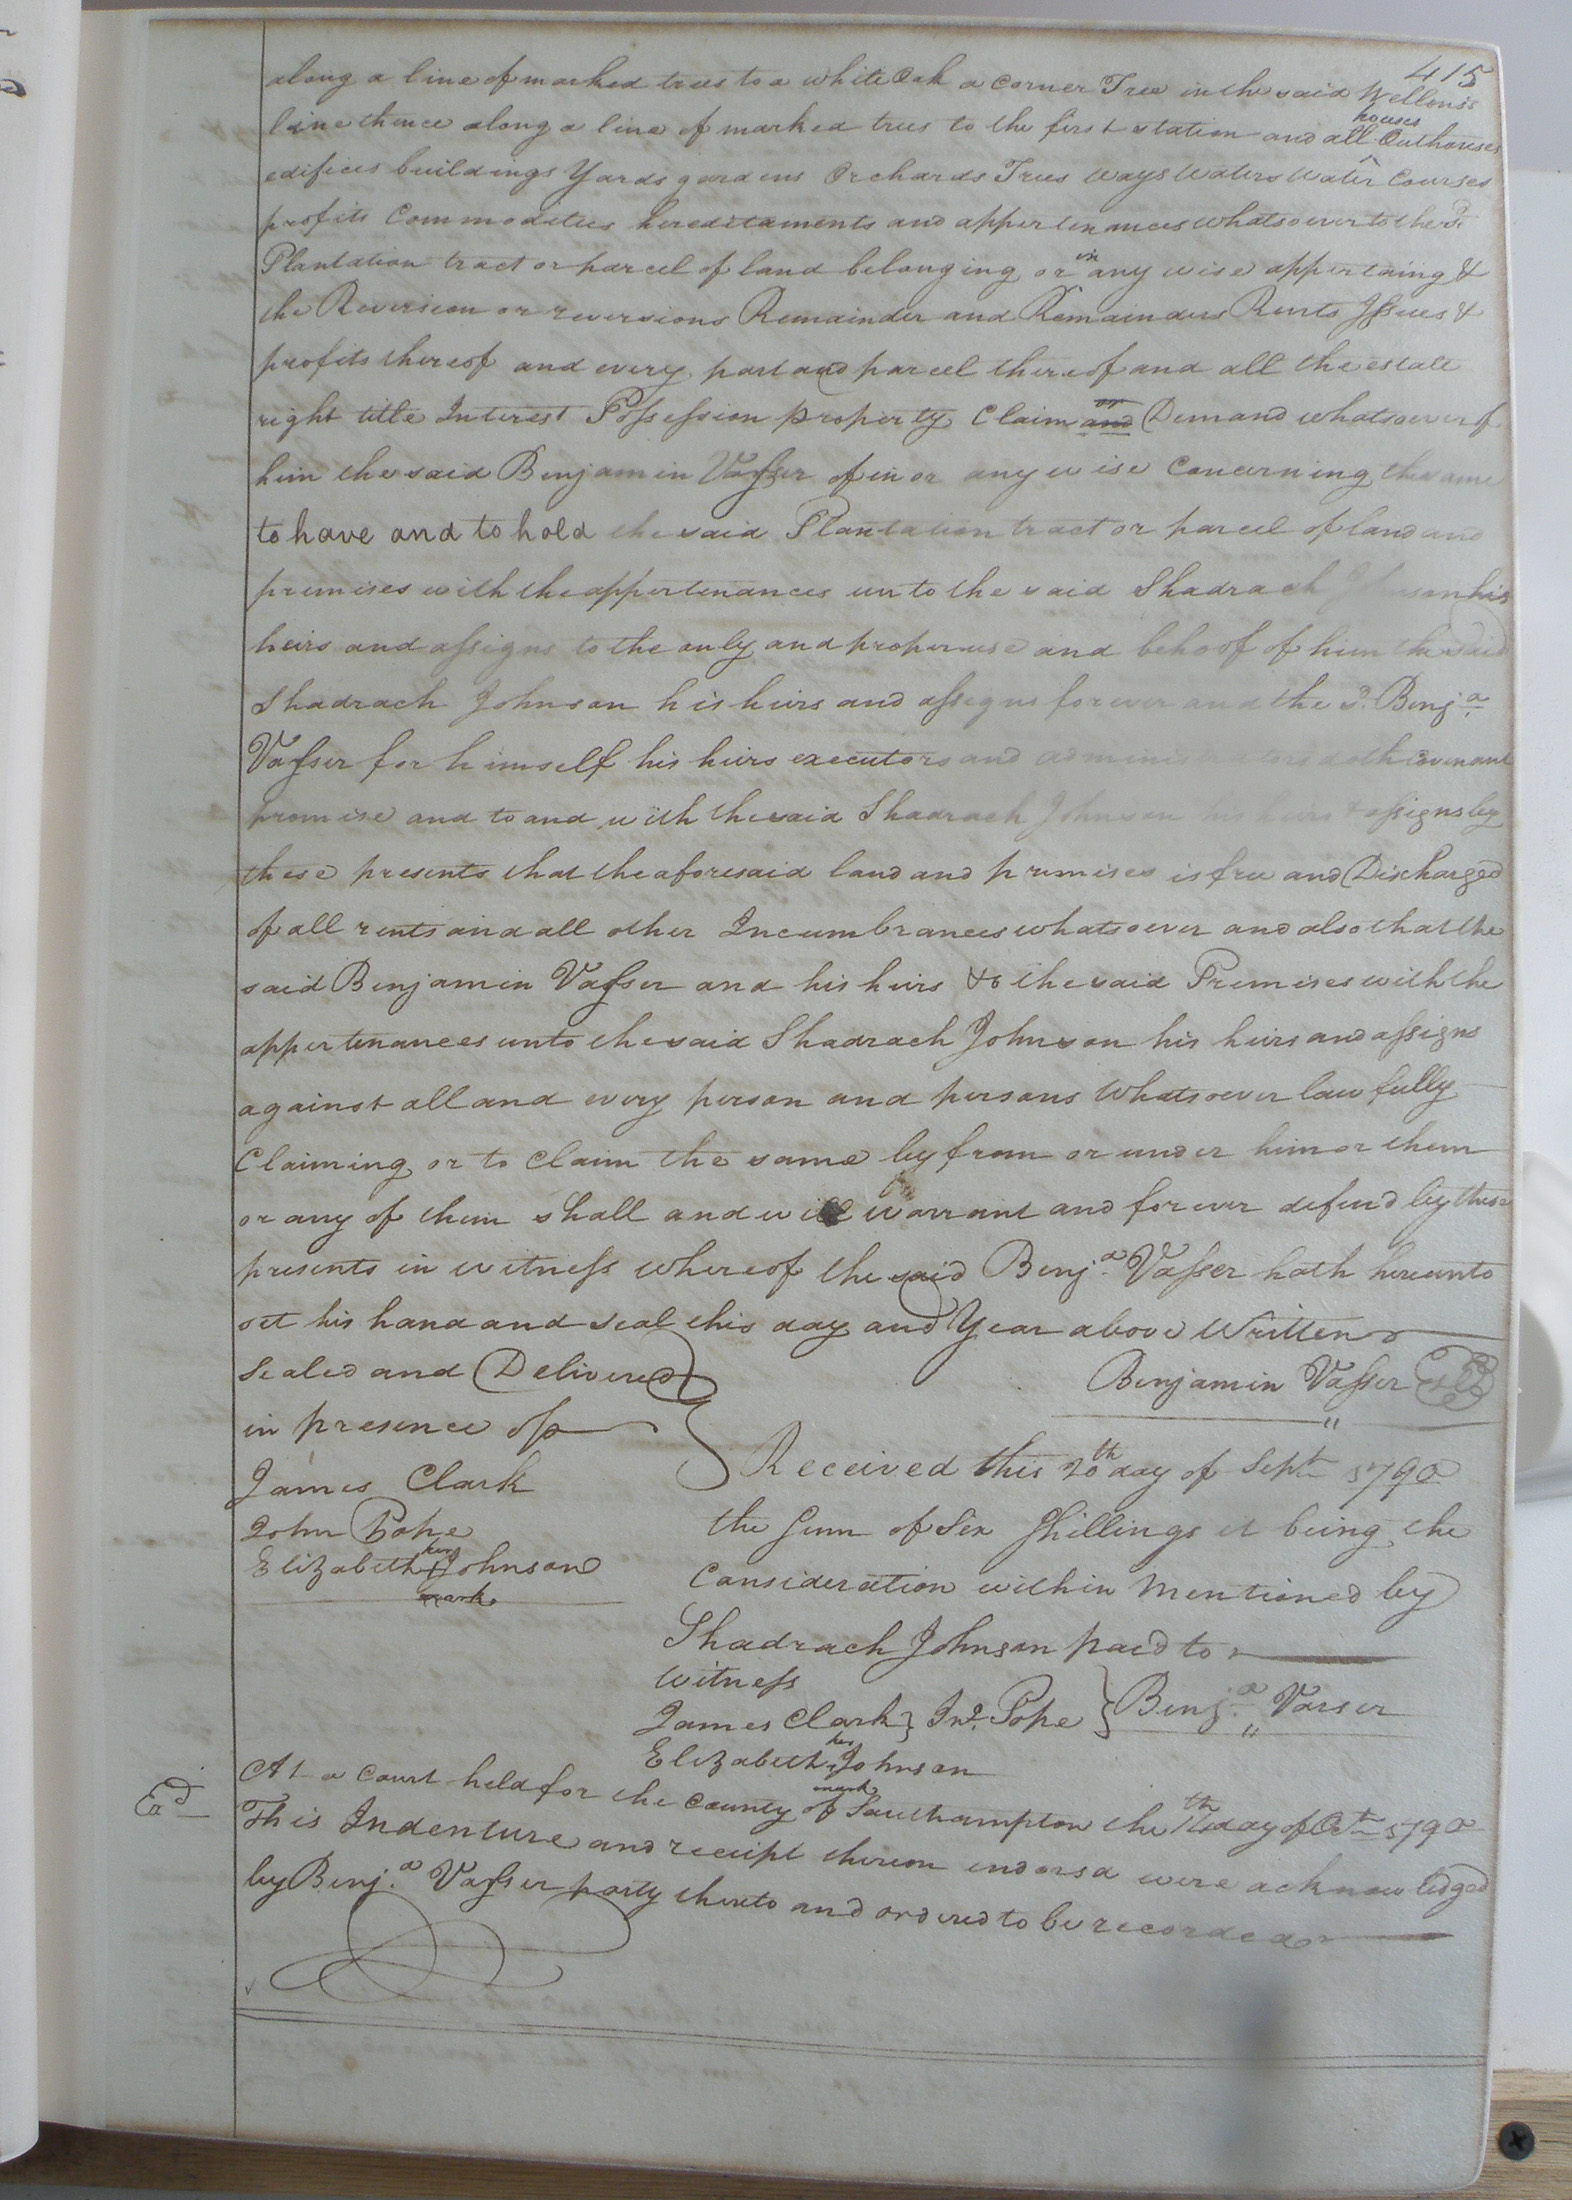 415
along a line of marked trees to a white Oak a Corner Tree in the said Wellons's
line thence along a line of marked trees to the first station and all houses Outhouses
edifices buildings Yards gardens Orchards Trees ways waters water Courses
profits Commodities hereditaments and appertenances whatsoever to the sd.
Plantation tract or parcel of land belonging or in any wise appertaing &
the Reversion or reversions Remainder and Remainders Rents Issues &
profits thereof and every part and parcel thereof and all the estate
right title Interest Possession property Claim and or Demand whatsoever of
him the said Benjamin Vasser of in or any wise Concerning the same
to have and to hold the said Plantation tract or parcel of land and
premises with the appertenances unto the said Shadrach Johnson his
heirs and assigns to the only and proper use and behoof of him the said
Shadrach Johnson his heirs and assigns forever and the sd. Benja.
Vasser for himself his heirs executors and administrators doth covenant
promise and to and with the said Shadrach Johnson his heirs & assigns by
these presents that the aforesaid land and premises is free and Discharged
of all rents and all other Incumbrances whatsoever and also that the
said Benjamin Vasser and his heirs to the said Premises with the
appertenances unto the said Shadrach Johnson his heirs and assigns
against all and every person and persons Whatsoever lawfully
Claiming or to Claim the same by from or under him or them
or any of them shall and will warrant and forever defend by these
presents in witness whereof the said Benja. Vasser hath hereunto
set his hand and seal this day and Year above Written
Sealed and Delivered
Benjamin Vasser
in presence of
James Clark
John Pope
her
Elizabeth + Johnson
mark
Received this 20th day of Septr 1790
the Sum of Six Shillings it being the
Consideration within Mentioned by
Shadrach Johnson paid to
Witness
James Clark } Jno. Pope } Benja. Vasser
her
Elizabeth + Johnson
mark
At a Court held for the County of Southampton the 14th day of Octr 1790
Ed
This Indenture and receipt thereon endorsd were acknowledged
by Benja. Vasser party thereto and ordered to be recorded